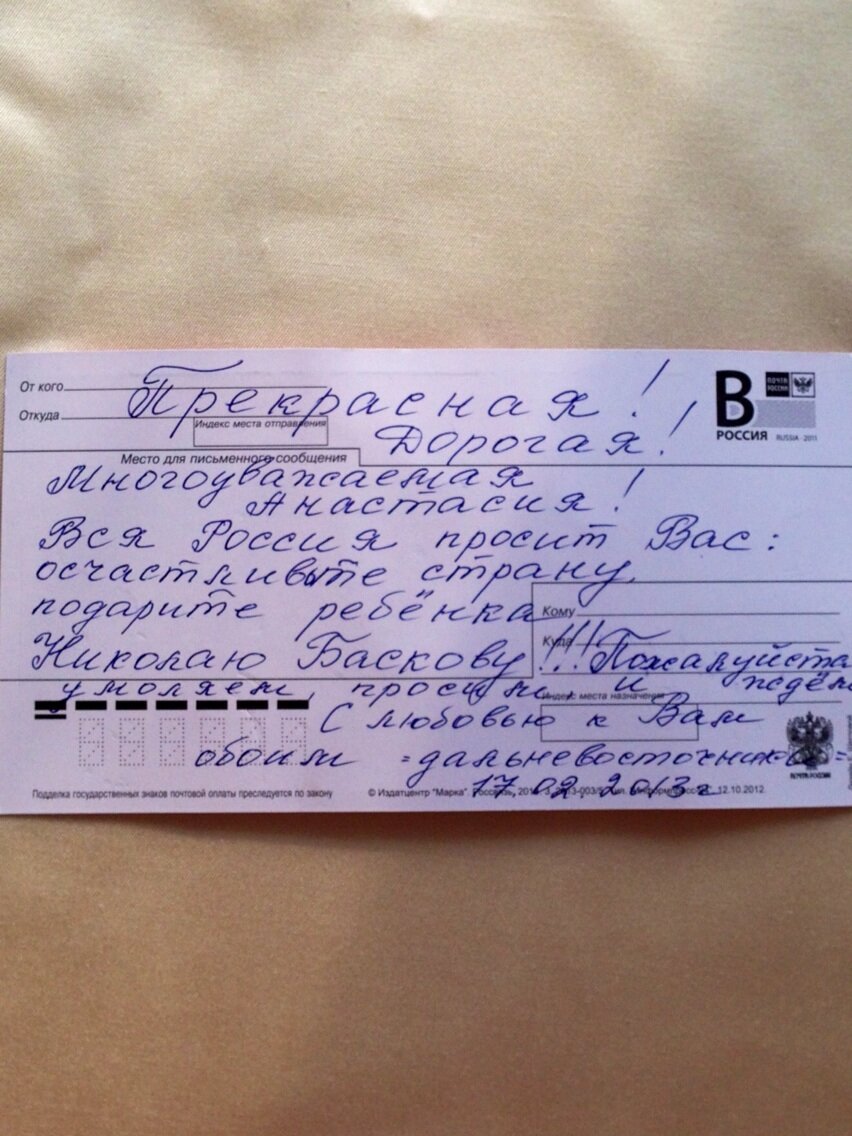 От кого
Откуда
Прекрасная!
Индекс места отправления
Дорогая!
В
РОССИЯ RUSSIA · 2011
ПОЧТА РОССИИ
Место для письменного сообщения
Многоуважаемая
Анастасия!
Вся Россия просит Вас:
осчастливьте страну,
подарите ребёнка
Кому
Куда
Николаю Баскову!!! Пожалуйста
умоляем, просим, и ждём
Индекс места назначения
С любовью к Вам
обоим = дальневосточники =
ПОЧТА РОССИИ
17.02.2013г
Подделка государственных знаков почтовой оплаты преследуется по закону
© Издатцентр "Марка". 12.10.2012.